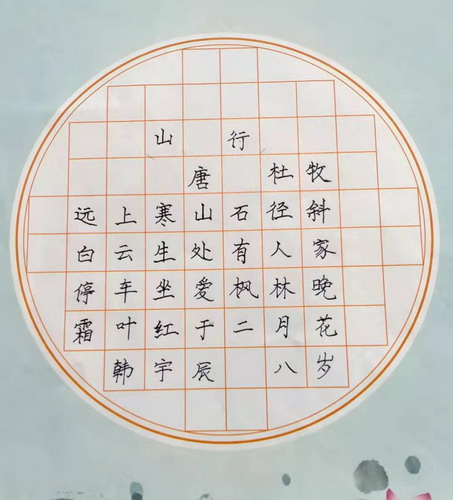 山行
唐 杜牧
远上寒山石径斜
白云生处有人家
停车坐爱枫林晚
霜叶红于二月花
韩宇辰 八岁